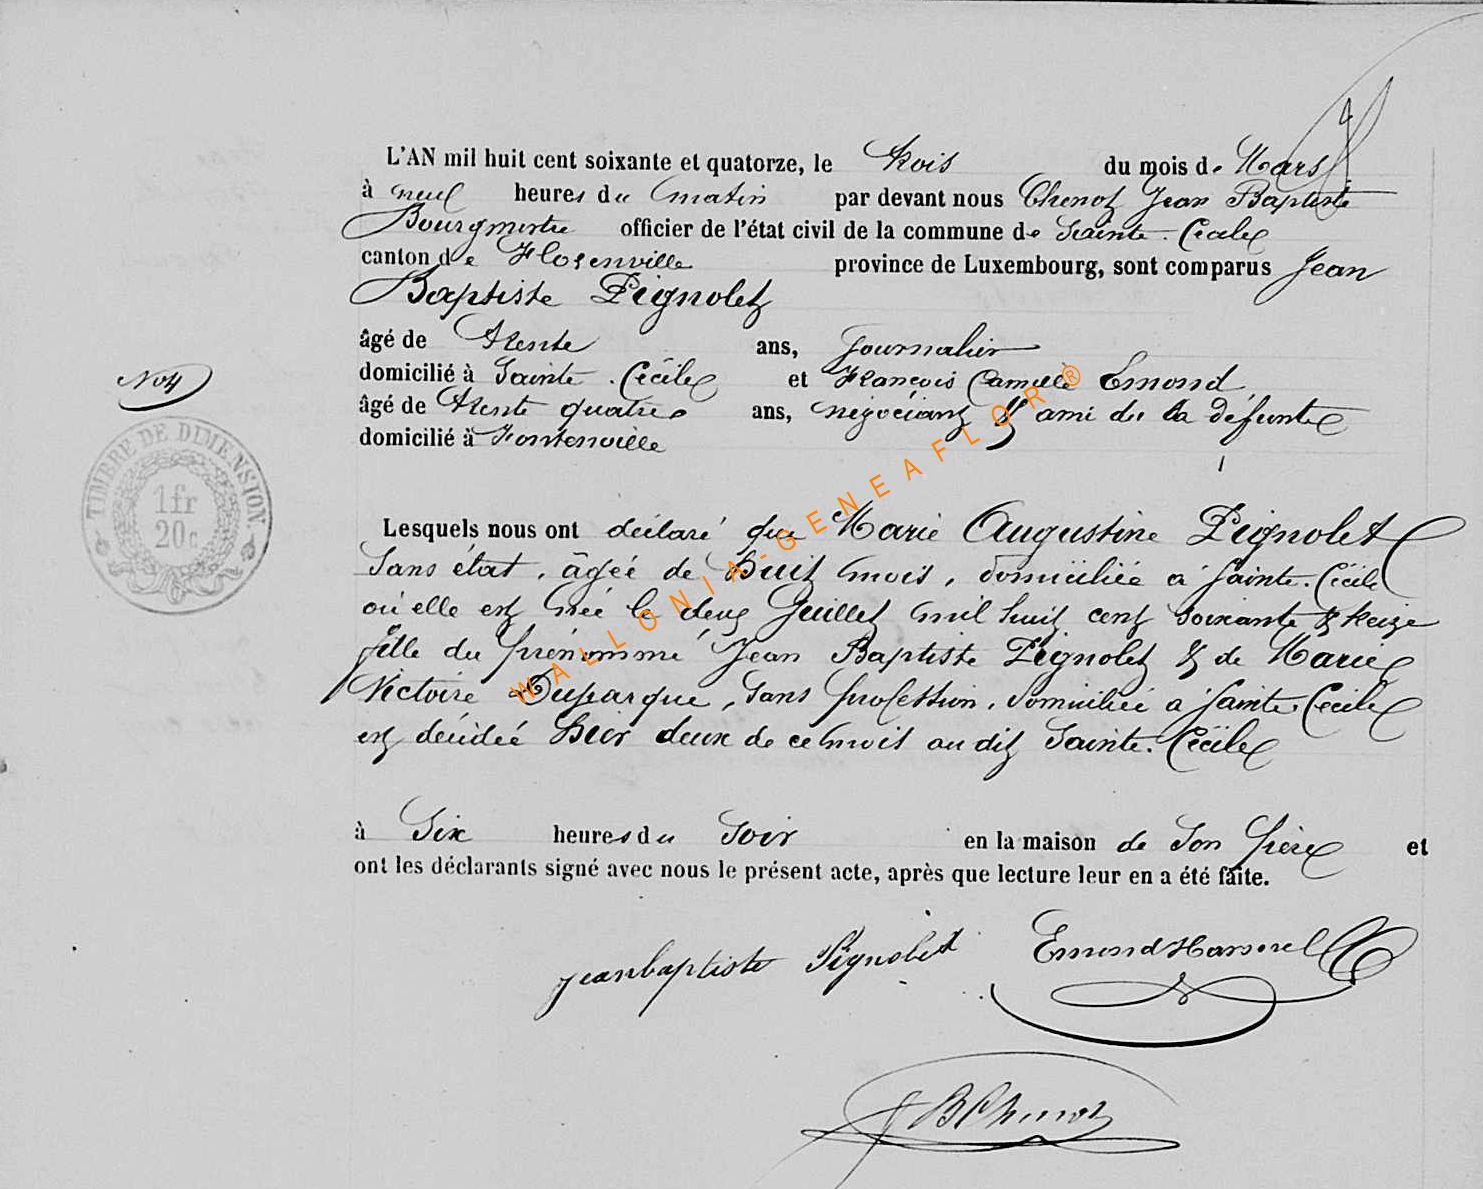 L'AN mil huit cent soixante et quatorze, le trois du mois de Mars
à neuf heures du matin par devant nous Chenot Jean Baptiste
Bourgmestre officier de l'état civil de la commune de Sainte-Cécile
canton de Florenville province de Luxembourg, sont comparus Jean
Baptiste Pignolet
âgé de trente ans, journalier
domicilié à Sainte-Cécile et François Camille Emond
N° 4
âgé de trente quatre ans, négociant & ami de la défunte
domicilié à Fontenoille
TIMBRE DE DIMENSION.
1fr
20c
Lesquels nous ont déclaré que Marie Augustine Pignolet
Sans état, âgée de huit mois, domiciliée à Sainte-Cécile
où elle est née le deux Juillet mil huit cent soixante & treize
fille du prénommé Jean Baptiste Pignolet & de Marie
Victoire Duparque, sans profession, domiciliée à Sainte-Cécile
est décédée hier deux de ce mois au dit Sainte-Cécile
à Six heures du Soir en la maison de Son père et
ont les déclarants signé avec nous le présent acte, après que lecture leur en a été faite.
jeanbaptiste Pignolet Emond
JBChenot
WALLONIA-GENEAFLOR®